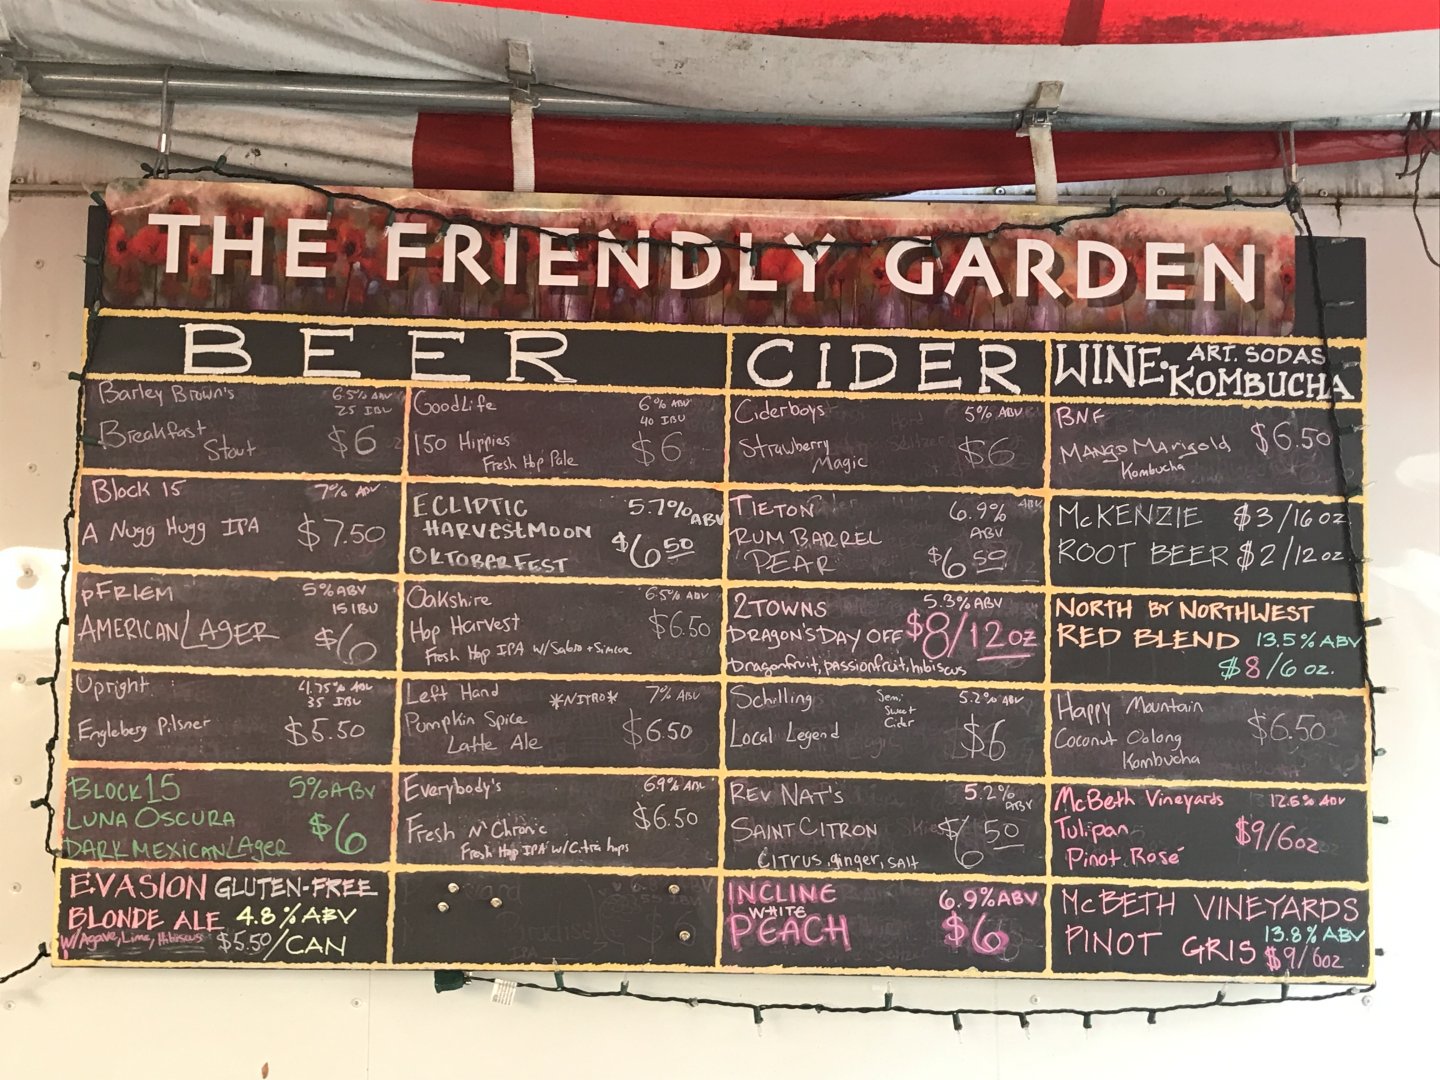 THE FRIENDLY GARDEN
BEER
Barley Brown's 6.5% ABV
25 IBU
Breakfast
Stout $6
Block 15 7% ABV
A Nugg Hugg IPA $7.50
pFRIEM 5% ABV
15 IBU
AMERICAN LAGER $6
Upright 4.75% ABV
35 IBU
Engleberg Pilsner $5.50
BLOCK 15 5% ABV
LUNA OSCURA $6
DARK MEXICAN LAGER
EVASION GLUTEN-FREE
BLONDE ALE 4.8% ABV
W/Agave, Lime, Hibiscus $5.50/CAN
GoodLife 6% ABV
40 IBU
150 Hippies $6
Fresh Hop Pale
ECLIPTIC 5.7% ABV
HARVESTMOON $6.50
OKTOBERFEST
Oakshire 6.5% ABV
Hop Harvest $6.50
Fresh Hop IPA w/Sabro + Simcoe
Left Hand *NITRO* 7% ABV
Pumpkin Spice $6.50
Latte Ale
Everybody's 6.9% ABV
Fresh N' Chronic $6.50
Fresh Hop IPA w/Citra hops
CIDER
Ciderboys 5% ABV
Strawberry $6
Magic
TIETON 6.9%
RUM BARREL ABV
PEAR $6.50
2TOWNS 5.3% ABV
DRAGON'S DAY OFF $8/12oz
Dragonfruit, passionfruit, hibiscus
Schilling Semi Sweet Cider 5.2% ABV
Local Legend $6
REV NAT'S 5.2% ABV
SAINT CITRON $6.50
CITRUS, ginger, SALT
INCLINE 6.9% ABV
WHITE
PEACH $6
WINE. ART. SODAS
KOMBUCHA
BNF $6.50
Mango Marigold
Kombucha
McKENZIE $3/16oz.
ROOT BEER $2/12oz
NORTH BY NORTHWEST
RED BLEND 13.5% ABV
$8/6 oz.
Happy Mountain $6.50
Coconut Oolong
Kombucha
McBeth Vineyards 12.6% ABV
Tulipan $9/6oz
Pinot Rosé
McBETH VINEYARDS
PINOT GRIS 13.8% ABV
$9/6oz